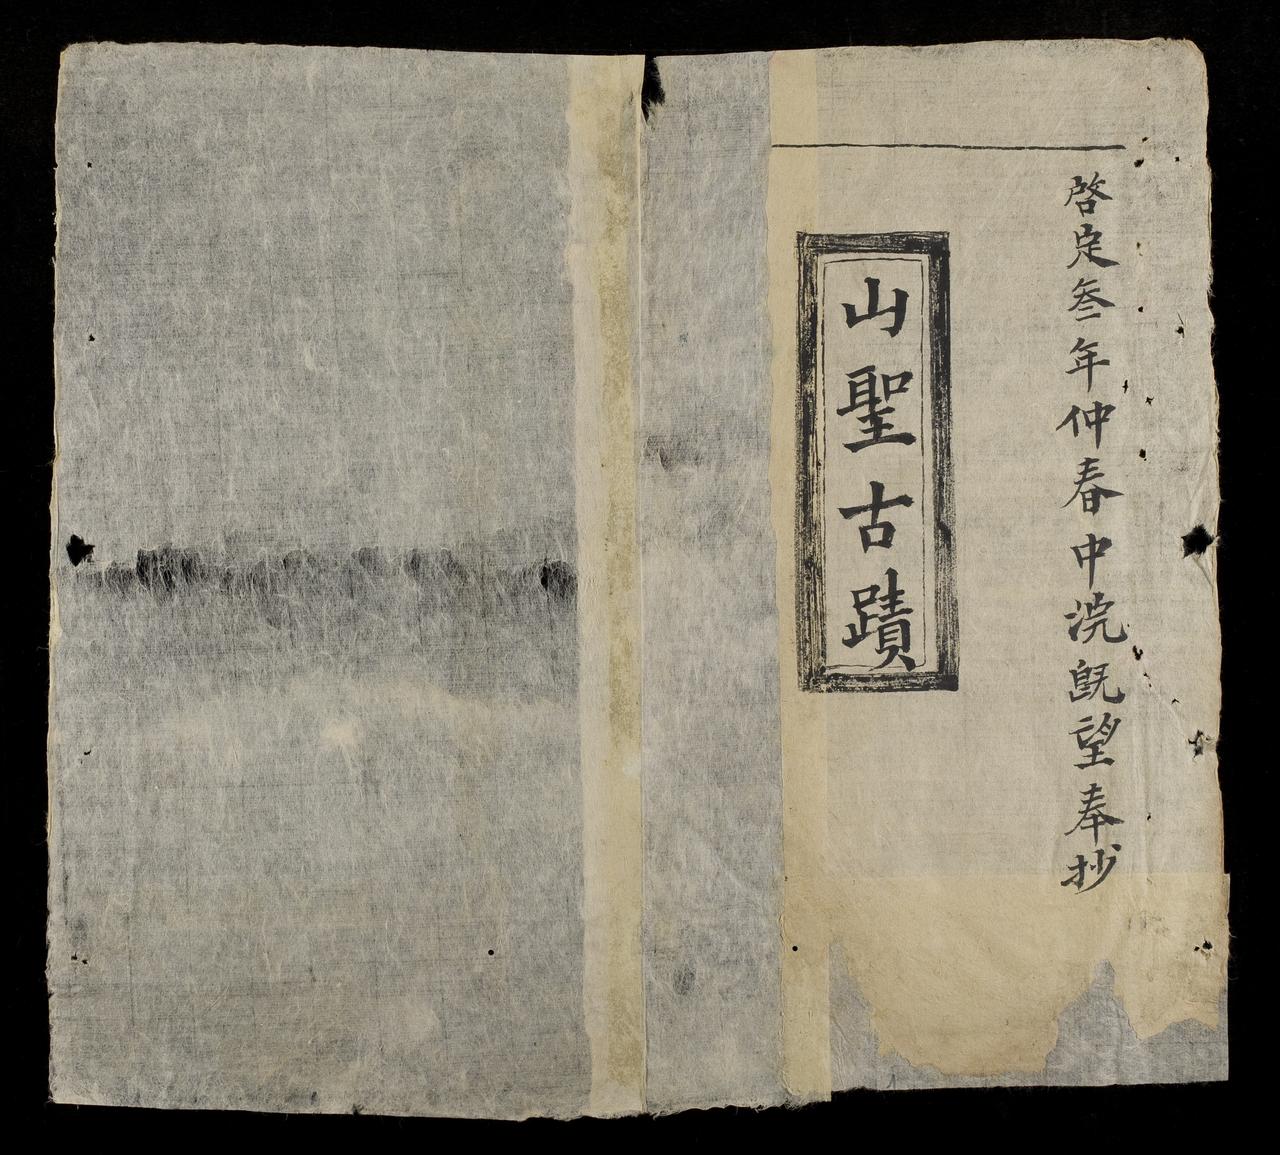 啓定叁年仲春中浣旣望奉抄
山聖古蹟